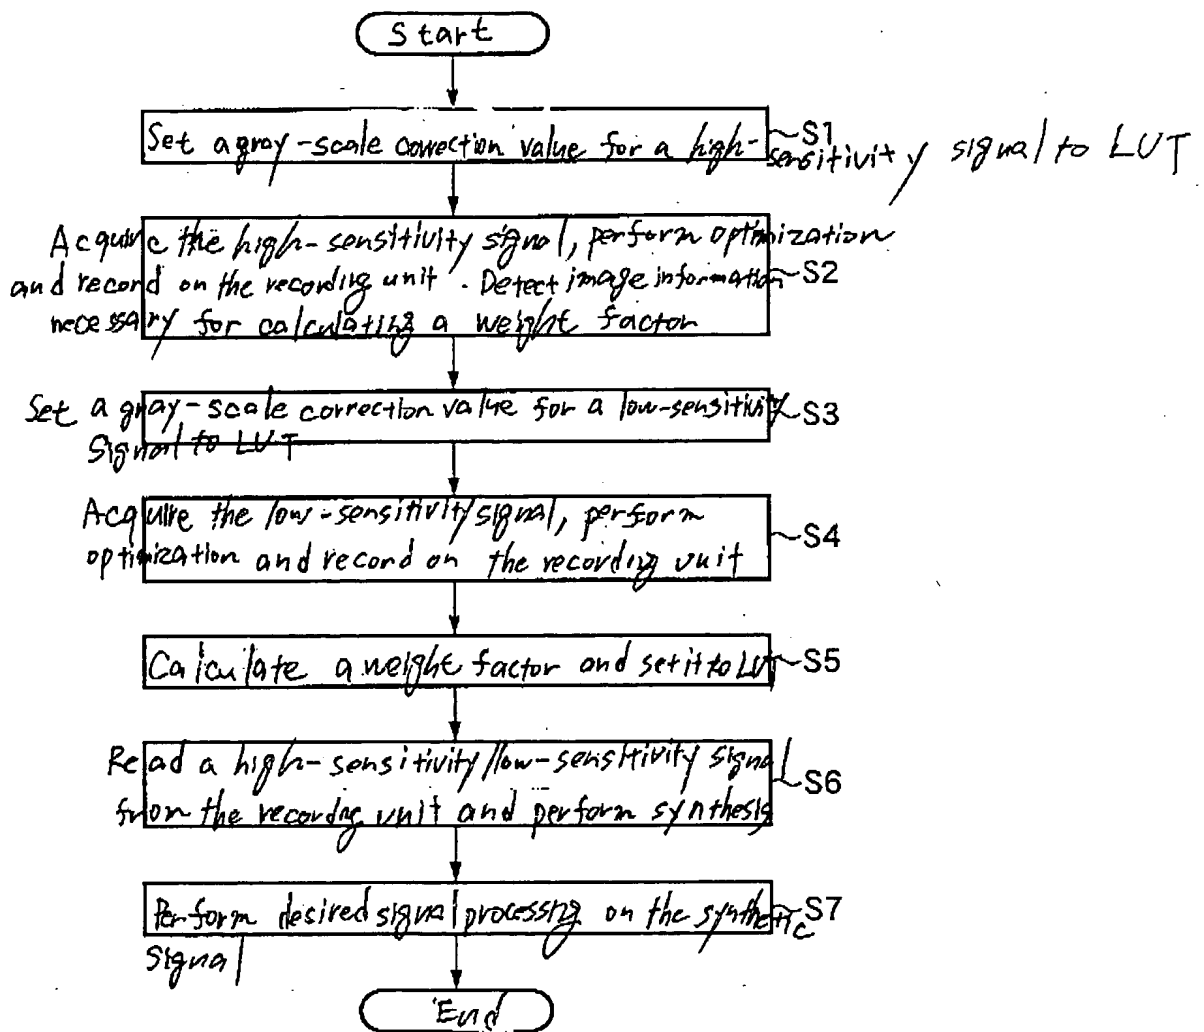 Start
Set a gray-scale correction value for a high-
sensitivity signal to LUT
S1
Acquire the high-sensitivity signal, perform optimization
and record on the recording unit. Detect image information
necessary for calculating a weight factor
S2
Set a gray-scale correction value for a low-sensitivity
Signal to LUT
S3
Acquire the low-sensitivity signal, perform
optimization and record on the recording unit
S4
Calculate a weight factor and set it to LUT
S5
Read a high-sensitivity/low-sensitivity signal
from the recording unit and perform synthesis
S6
Perform desired signal processing on the synthetic
signal
S7
End